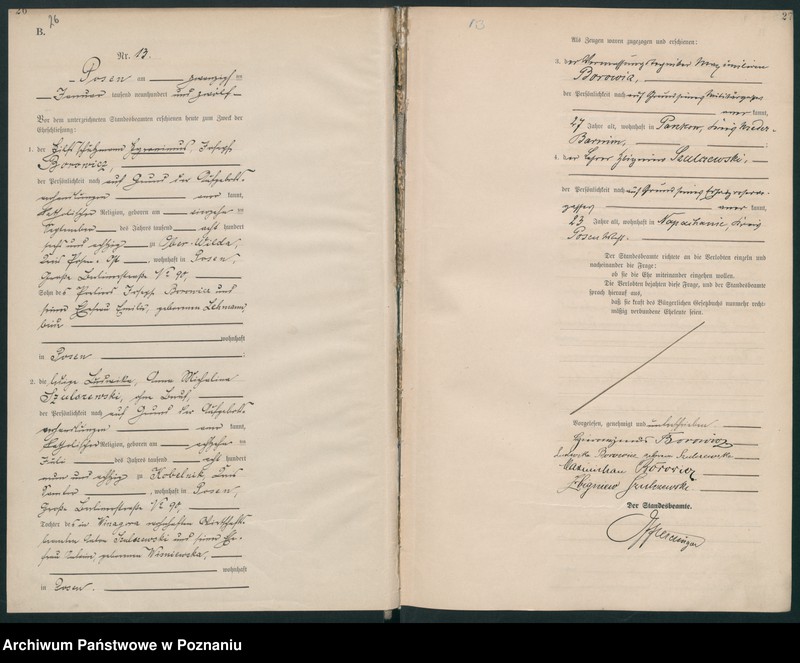 26
B.
26
Nr. 13.
Posen am zwanzigsten
Januar tausend neunhundert und zwölf
Vor dem unterzeichneten Standesbeamten erschienen heute zum Zweck der
Eheschließung:
1. der Hilfsschutzmann Hyronimus, Joseph
Borowicz,
der Persönlichkeit nach auf Grund der Aufgebots-
verhandlungen kannt,
katholischer Religion, geboren am
September des Jahres tausend acht hundert
sechs und achtzig zu Ober-Wilda,
Kreis Posen-Ost, wohnhaft in Posen,
Große Berlinerstraße Nr. 90,
Sohn des Joseph Borowicz und
seiner Ehefrau Emilie, geborenen Lehmann,
beide
wohnhaft
in Posen
2. die ledige Ludwika, Anna Michalina
Szulczewski, ohne Beruf,
der Persönlichkeit nach auf Grund der Aufgebots-
verhandlungen kannt,
katholischer Religion, geboren am
Juli des Jahres tausend acht hundert
neun und achtzig zu Kobelnik, Kreis
Samter, wohnhaft in Posen,
Große Berlinerstraße Nr. 90,
Tochter des in Winagora verstorbenen
Szulczewski und seiner Ehe-
frau geborenen Wisniewska,
wohnhaft
in Posen.
27
13
Als Zeugen waren zugezogen und erschienen:
3. der Vermessungstechniker Maximilian
Borowicz,
der Persönlichkeit nach auf Grund seines Militärpasses
kannt,
27 Jahre alt, wohnhaft in Pankow, Kreis Nieder-
Barnim,
4. der Lehrer Zbigniew Szulczewski,
der Persönlichkeit nach auf Grund seines Ersatzreserve-
passes kannt,
23 Jahre alt, wohnhaft in Napachanie, Kreis
Posen West.
Der Standesbeamte richtete an die Verlobten einzeln und
nacheinander die Frage:
ob sie die Ehe miteinander eingehen wollen.
Die Verlobten bejahten diese Frage, und der Standesbeamte
sprach hierauf aus,
daß sie kraft des Bürgerlichen Gesetzbuchs nunmehr recht-
mäßig verbundene Eheleute seien.
Vorgelesen, genehmigt und unterschrieben
Borowicz
Ludwika Borowicz geborene Szulczewska
Maximilian Borowicz
Zbigniew Szulczewski
Der Standesbeamte.
Archiwum Państwowe w Poznaniu